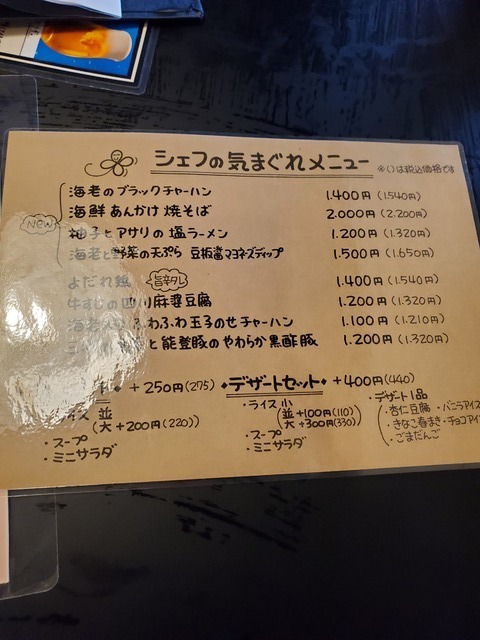 シェフの気まぐれメニュー ※()は税込価格です
New
海老のブラックチャーハン 1.400円(1.540円)
海鮮あんかけ焼そば 2.000円(2.200円)
柚子とアサリの塩ラーメン 1.200円(1.320円)
海老と野菜の天ぷら 豆板醤マヨネーズディップ 1.500円(1.650円)
よだれ鶏 旨辛タレ 1.400円(1.540円)
牛すじの四川麻婆豆腐 1.200円(1.320円)
海老入り ふわふわ玉子のせチャーハン 1.100円(1.210円)
と能登豚のやわらか黒酢豚 1.200円(1.320円)
+250円(275)
ライス 並
(大+200円(220))
・スープ
・ミニサラダ
◆デザートセット◆ +400円(440)
・ライス 小
(並+100円(110)
大+300円(330))
・スープ
・ミニサラダ
・デザート1品
・杏仁豆腐 ・バニラアイス
・きなこ春まき ・チョコアイ
・ごまだんご